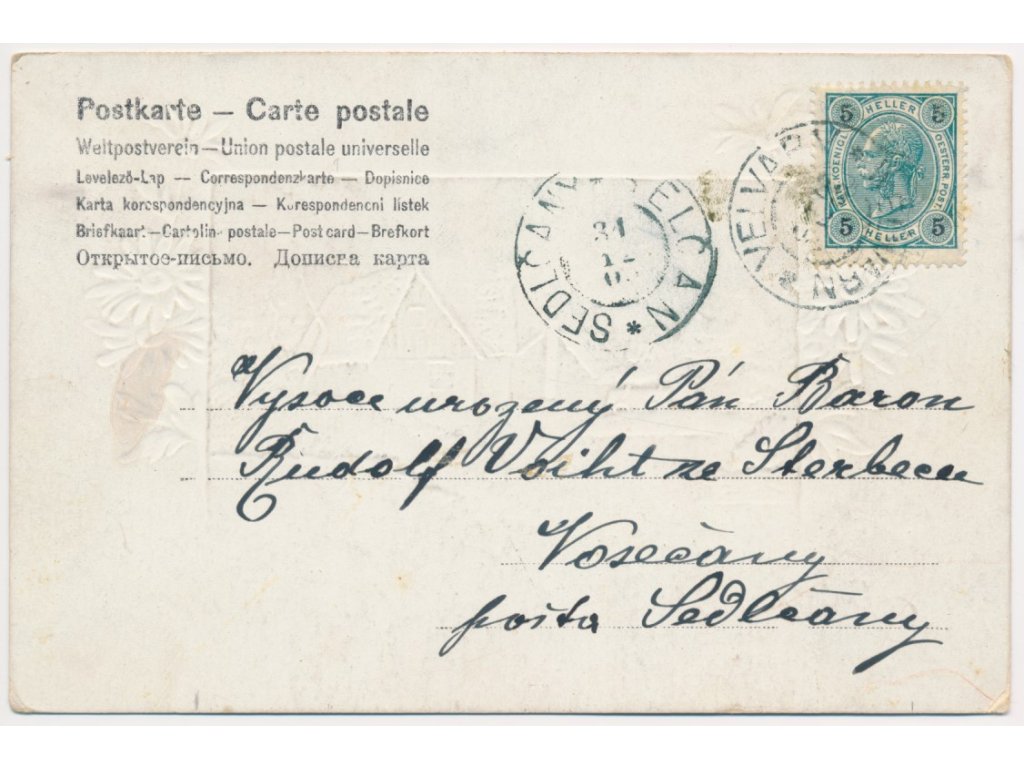 Postkarte – Carte postale
Weltpostverein – Union postale universelle
Levelező-Lap — Correspondenzkarte — Dopisnice
Karta korespondencyjna — Korespondencni listek
Briefkaart – Cartolina postale – Post card – Brefkort
Открытое-письмо. Дописна карта
5 HELLER 5
KAIS. KOENIGL. OESTERR. POST.
5 HELLER 5
VELVARY
SEDLČANY * SELČAN *
31
Vysoce urozený Pán Baron
Rudolf Voiht ze Sterbecu
Vosečany
pošta Sedlčany